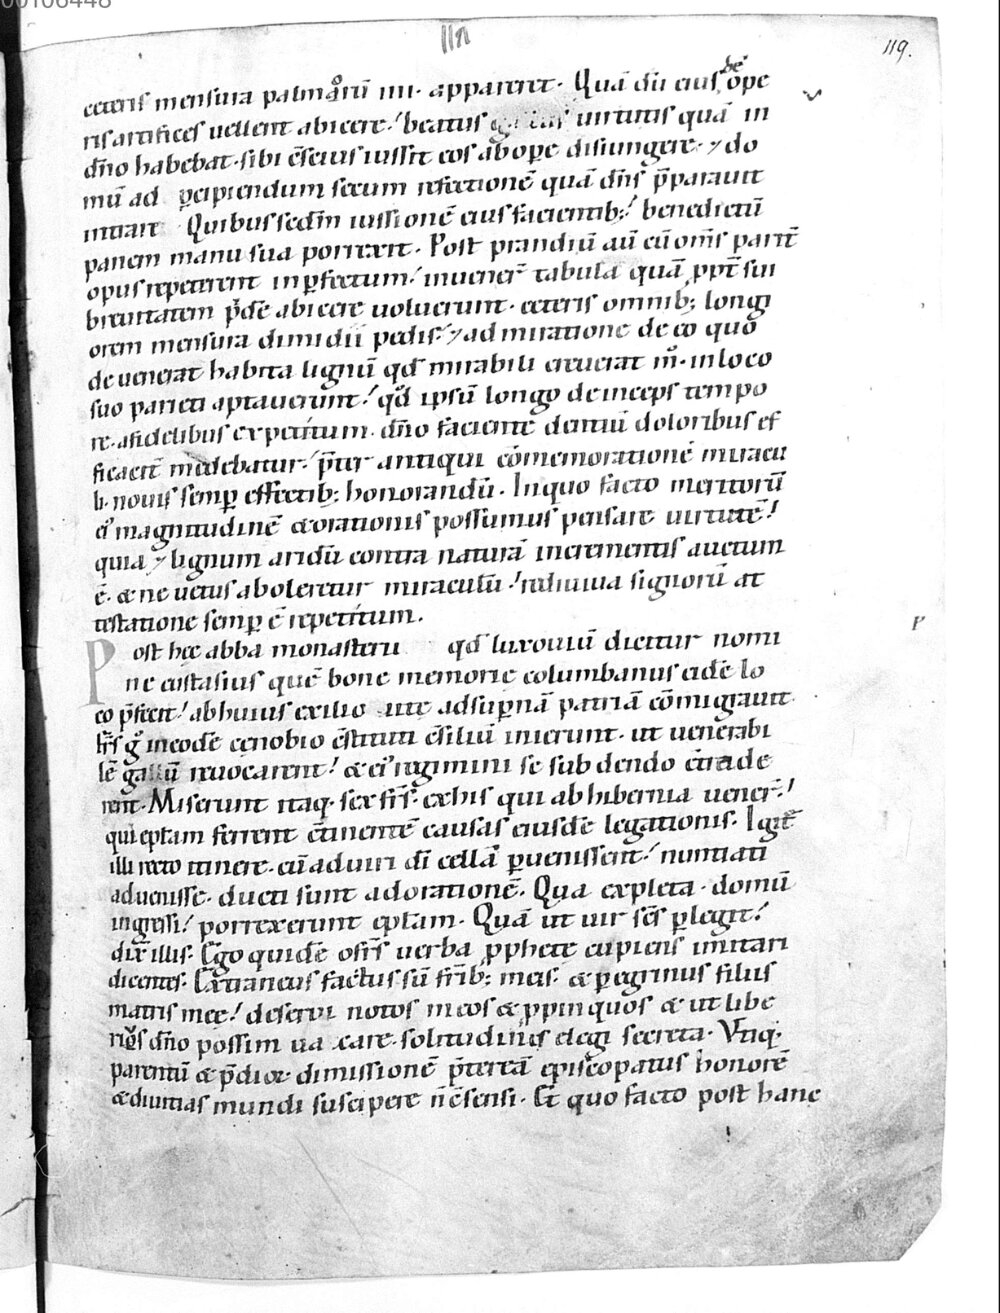 00106448
119.
ceteris mensura palmorū iiii· appareret· Quā dū eius ope
ris artifices vellent abicere· beatus gallus uirtutis quā in
dño habebat· sibi c̄scius iussit eos ab ope disiungere· ⁊ do
mū ad p̱cipiendum secum refectionē quā dñs p̄parauit
intrare Quibus sedm̄ iussionē eius facientib; benedictū
panem manu sua porrexit· Post prandiū aū cū om̄s parit̄
opus repeterent inp̱fectum· inuener̄ tabulā quā ppt̄ sui
breuitatem p̄dē abicere uoluerunt· ceteris omnib; longi
orem mensura dimidii pedis· ⁊ admiratione de eo quo
devenerat habita lignū qđ mirabili creuerat m̊· in loco
suo parieti aptauerunt· qđ ipsū longo deinceps tempo
re· a fidelibus expetitum· dño faciente dentiū doloribus ef
ficacit̄ medebatur· p̄ter antiqui cōmemorationē miracu
li· nouis semp̱ effectib; honorandū· In quo facto meritorū
ei᾽ magnitudinē & orationis possumus pensare uirtutē·
quia ⁊ lignum aridū contra naturā incrementis auctum
ē· & ne uetus aboleretur miraculū· rediuiua signorū at
testatione semp̱ ē repetitum.
Post hęc abba monasterii qđ luxouiū dicitur nomi
ne eustasius quē bonę memorię columbanus eidē lo
co p̄fecit· ab huius exilio uitę ad sup̱nā patriā cōmigrauit·
fr̄s g̊ in eodē cenobio c̄stituti c̄siliū inierunt· ut uenerabi
lē gallū reuocarent· & ei᾽ regimini se subdendo c̄trade
rent· Miserunt itaq· sex fr̄s· ex his qui ab hibernia uener̄·
qui ep̄tam ferrent c̄tinentē causas eiusdē legationis· Igit̄
illi recto itinere· cū ad uiri dī cellā p̱uenissent· nuntiati
aduenisse· ducti sunt ad orationē· Qua expleta· domū
ingressi· porrexerunt ep̄tam· Quā ut uir sc̄s p̱legit·
dix̄ illis· Ego quidē o fr̄s uerba pphetę cupiens imitari
dicentis· Extraneus factus sū fr̄ib; meis· & p̱egrinus filiis
matris meę· deserui notos meos & ppinquos & ut libe
rius dño possim uacare· solitudinis elegi secreta· Vtiq·
parentū & p̄dior̄ dimissionē p̄tereā episcopatus honorē
& diuitias mundi suscipere n̄ c̄sensi· Et quo facto post hanc